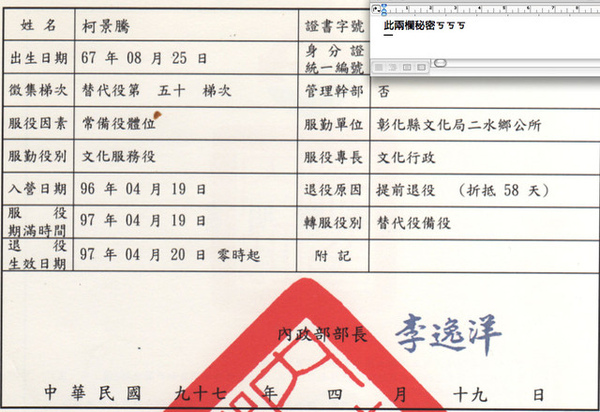 姓名 柯景騰 證書字號
此兩欄秘密ㄎㄎㄎ
出生日期 67 年 08 月 25 日 身分證統一編號
徵集梯次 替代役第 五十 梯次 管理幹部 否
服役因素 常備役體位 服勤單位 彰化縣文化局二水鄉公所
服勤役別 文化服務役 服役專長 文化行政
入營日期 96 年 04 月 19 日 退役原因 提前退役 (折抵 58 天)
服役期滿時間 97 年 04 月 19 日 轉服役別 替代役備役
退役生效日期 97 年 04 月 20 日 零時起 附記
內政部部長 李逸洋
中華民國 九十七 年 四 月 十九 日